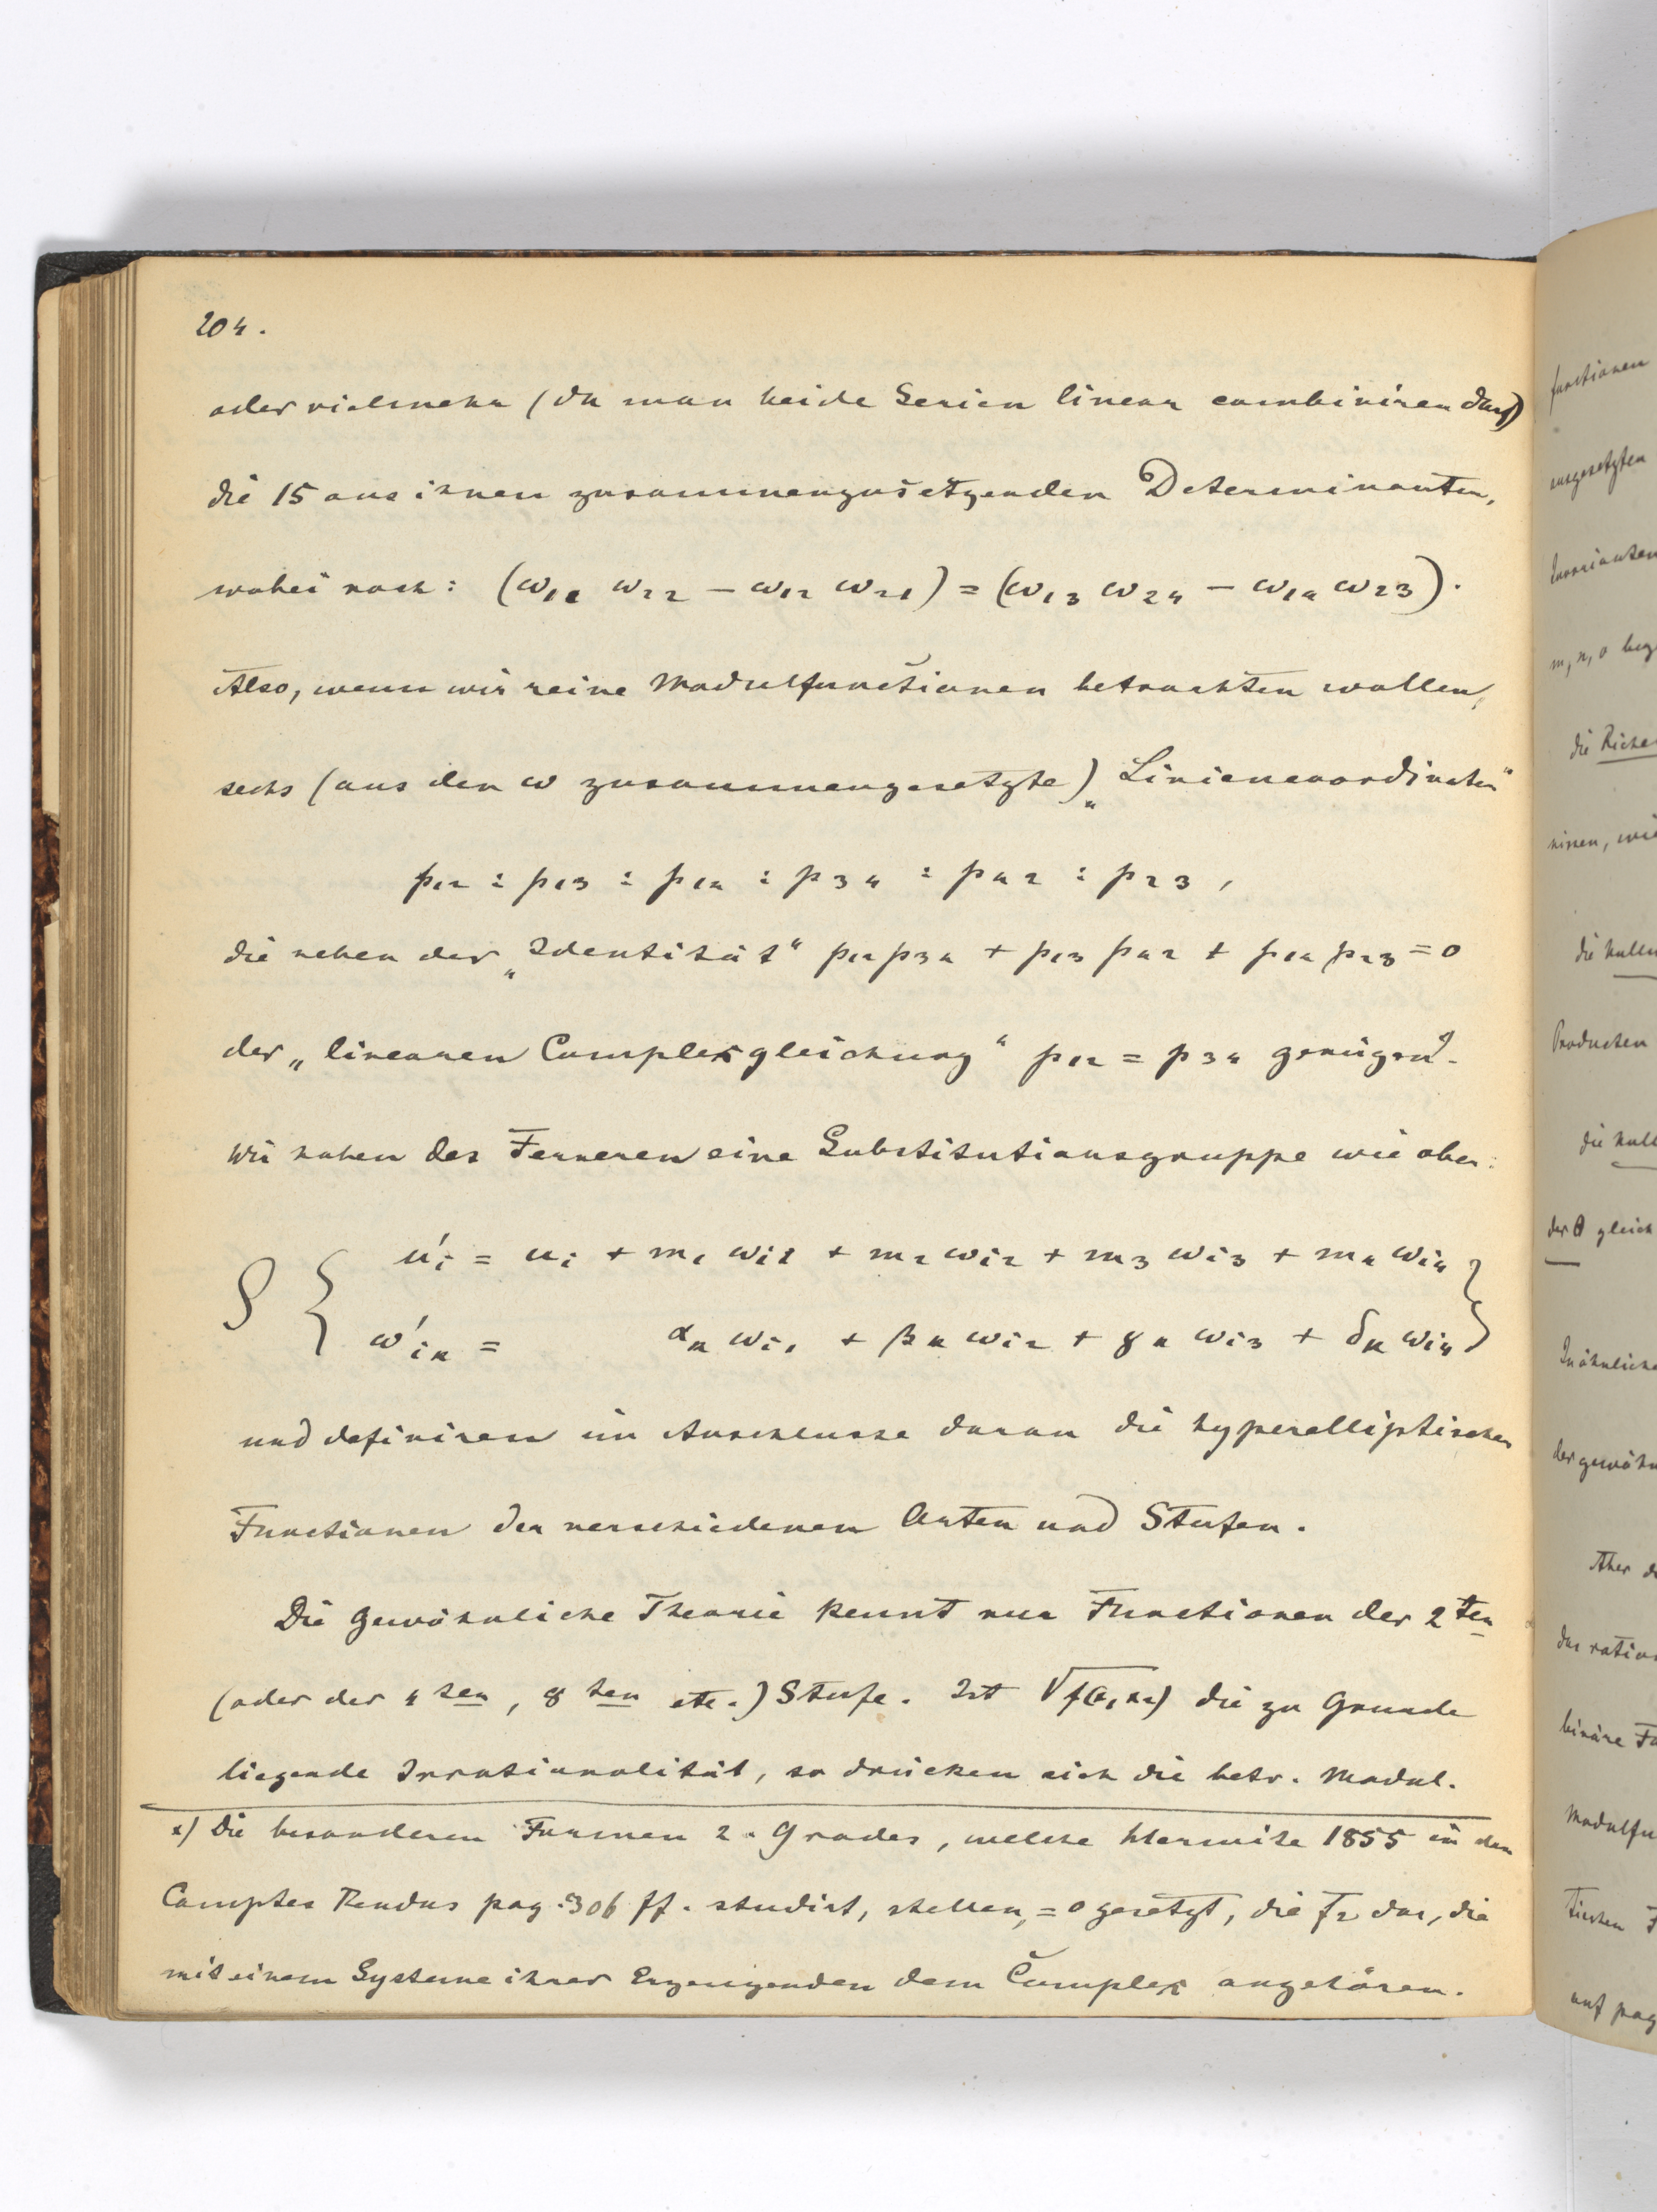 204.
oder vielmehr (da man beide Serien linear combiniren darf)
die 15 aus ihnen zusammenzusetzenden Determinanten,
wobei noch: (ω₁₁ ω₂₂ − ω₁₂ ω₂₁) = (ω₁₃ ω₂₄ − ω₁₄ ω₂₃).
Also, wenn wir reine Modulfunctionen betrachten wollen,
sechs (aus den ω zusammengesetzte) „Liniencoordinaten“
p₁₂ : p₁₃ : p₁₄ : p₃₄ : p₄₂ : p₂₃,
die neben der „Identität“ p₁₂p₃₄ + p₁₃p₄₂ + p₁₄p₂₃ = 0
der „linearen Complexgleichung“ p₁₂ = p₃₄ genügen.
Wir haben des Ferneren eine Substitutionsgruppe wie oben:
u′ᵢ = uᵢ + m₁ ωᵢ₁ + m₂ ωᵢ₂ + m₃ ωᵢ₃ + m₄ ωᵢ₄
ω′ᵢₖ = αₖ ωᵢ₁ + βₖ ωᵢ₂ + γₖ ωᵢ₃ + δₖ ωᵢ₄
und definiren im Anschlusse daran die hyperelliptischen
Functionen der verschiedenen Arten und Stufen.
Die gewöhnliche Theorie kennt nur Functionen der 2ten
(oder der 4ten, 8ten etc.) Stufe. Ist √f(x₁x₂) die zu Grunde
liegende Irrationalität, so drücken sich die betr. Modul.
x) Die besonderen Formen 2. Grades, welche Hermite 1855 in den
Comptes Rendus pag. 306 ff. studirt, stellen, = 0 gesetzt, die F₂ dar, die
mit einem Systeme ihrer Erzeugenden dem Complex angehören.
functionen
m, n, o
die
wie
die
Producten
die
der θ gleich
Aber
binäre
Modulfu
auf pag